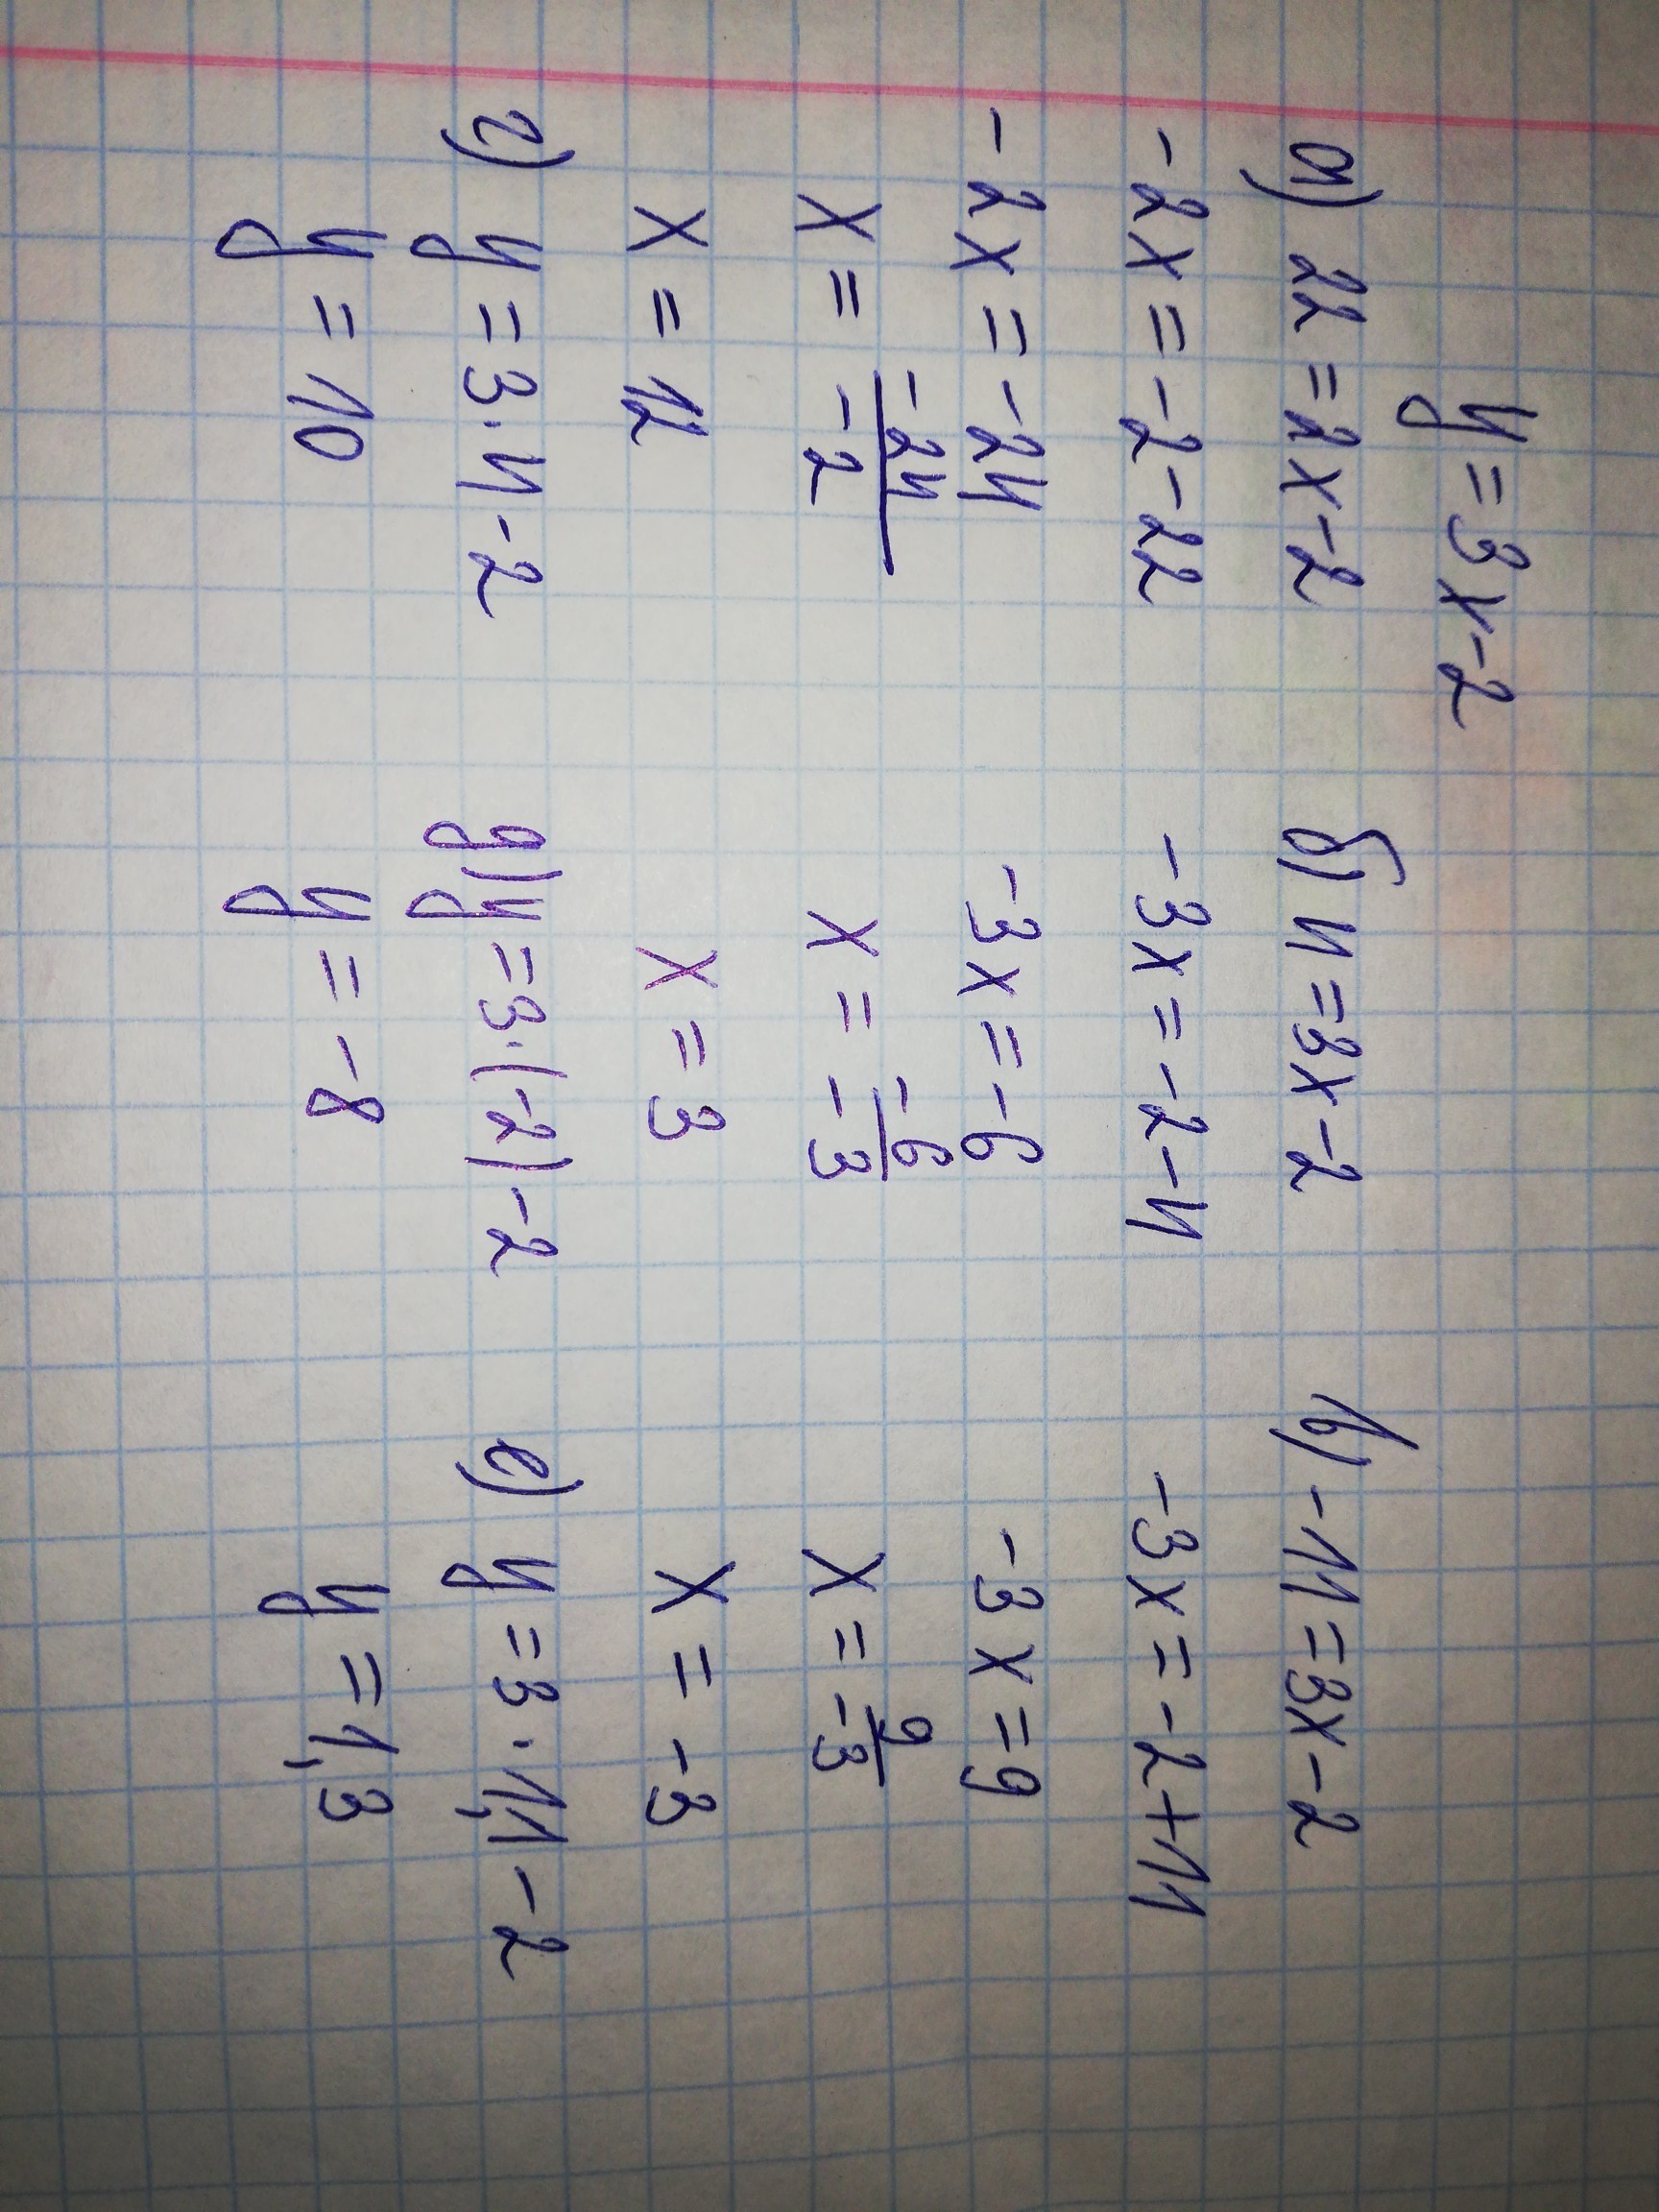 y = 3x-2
а) 22 = 2x-2
-2x = -2-22
-2x = -24
x = -24/-2
x = 12
б) 4 = 3x-2
-3x = -2-4
-3x = -6
x = -6/-3
x = 3
в) -11 = 3x-2
-3x = -2+11
-3x = 9
x = 9/-3
x = -3
г) y = 3·4-2
y = 10
д) y = 3·(-2)-2
y = -8
е) y = 3·1,1-2
y = 1,3